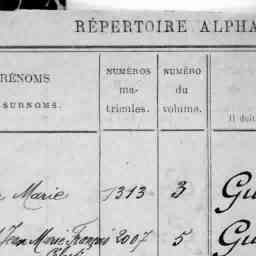 RÉPERTOIRE ALPHA
RÉNOMS
SURNOMS.
NUMÉROS
ma-
tricules.
NUMÉRO
du
volume.
Il doit
Marie 1313 3 Gu
Jean Marie François 2007 5 Gu